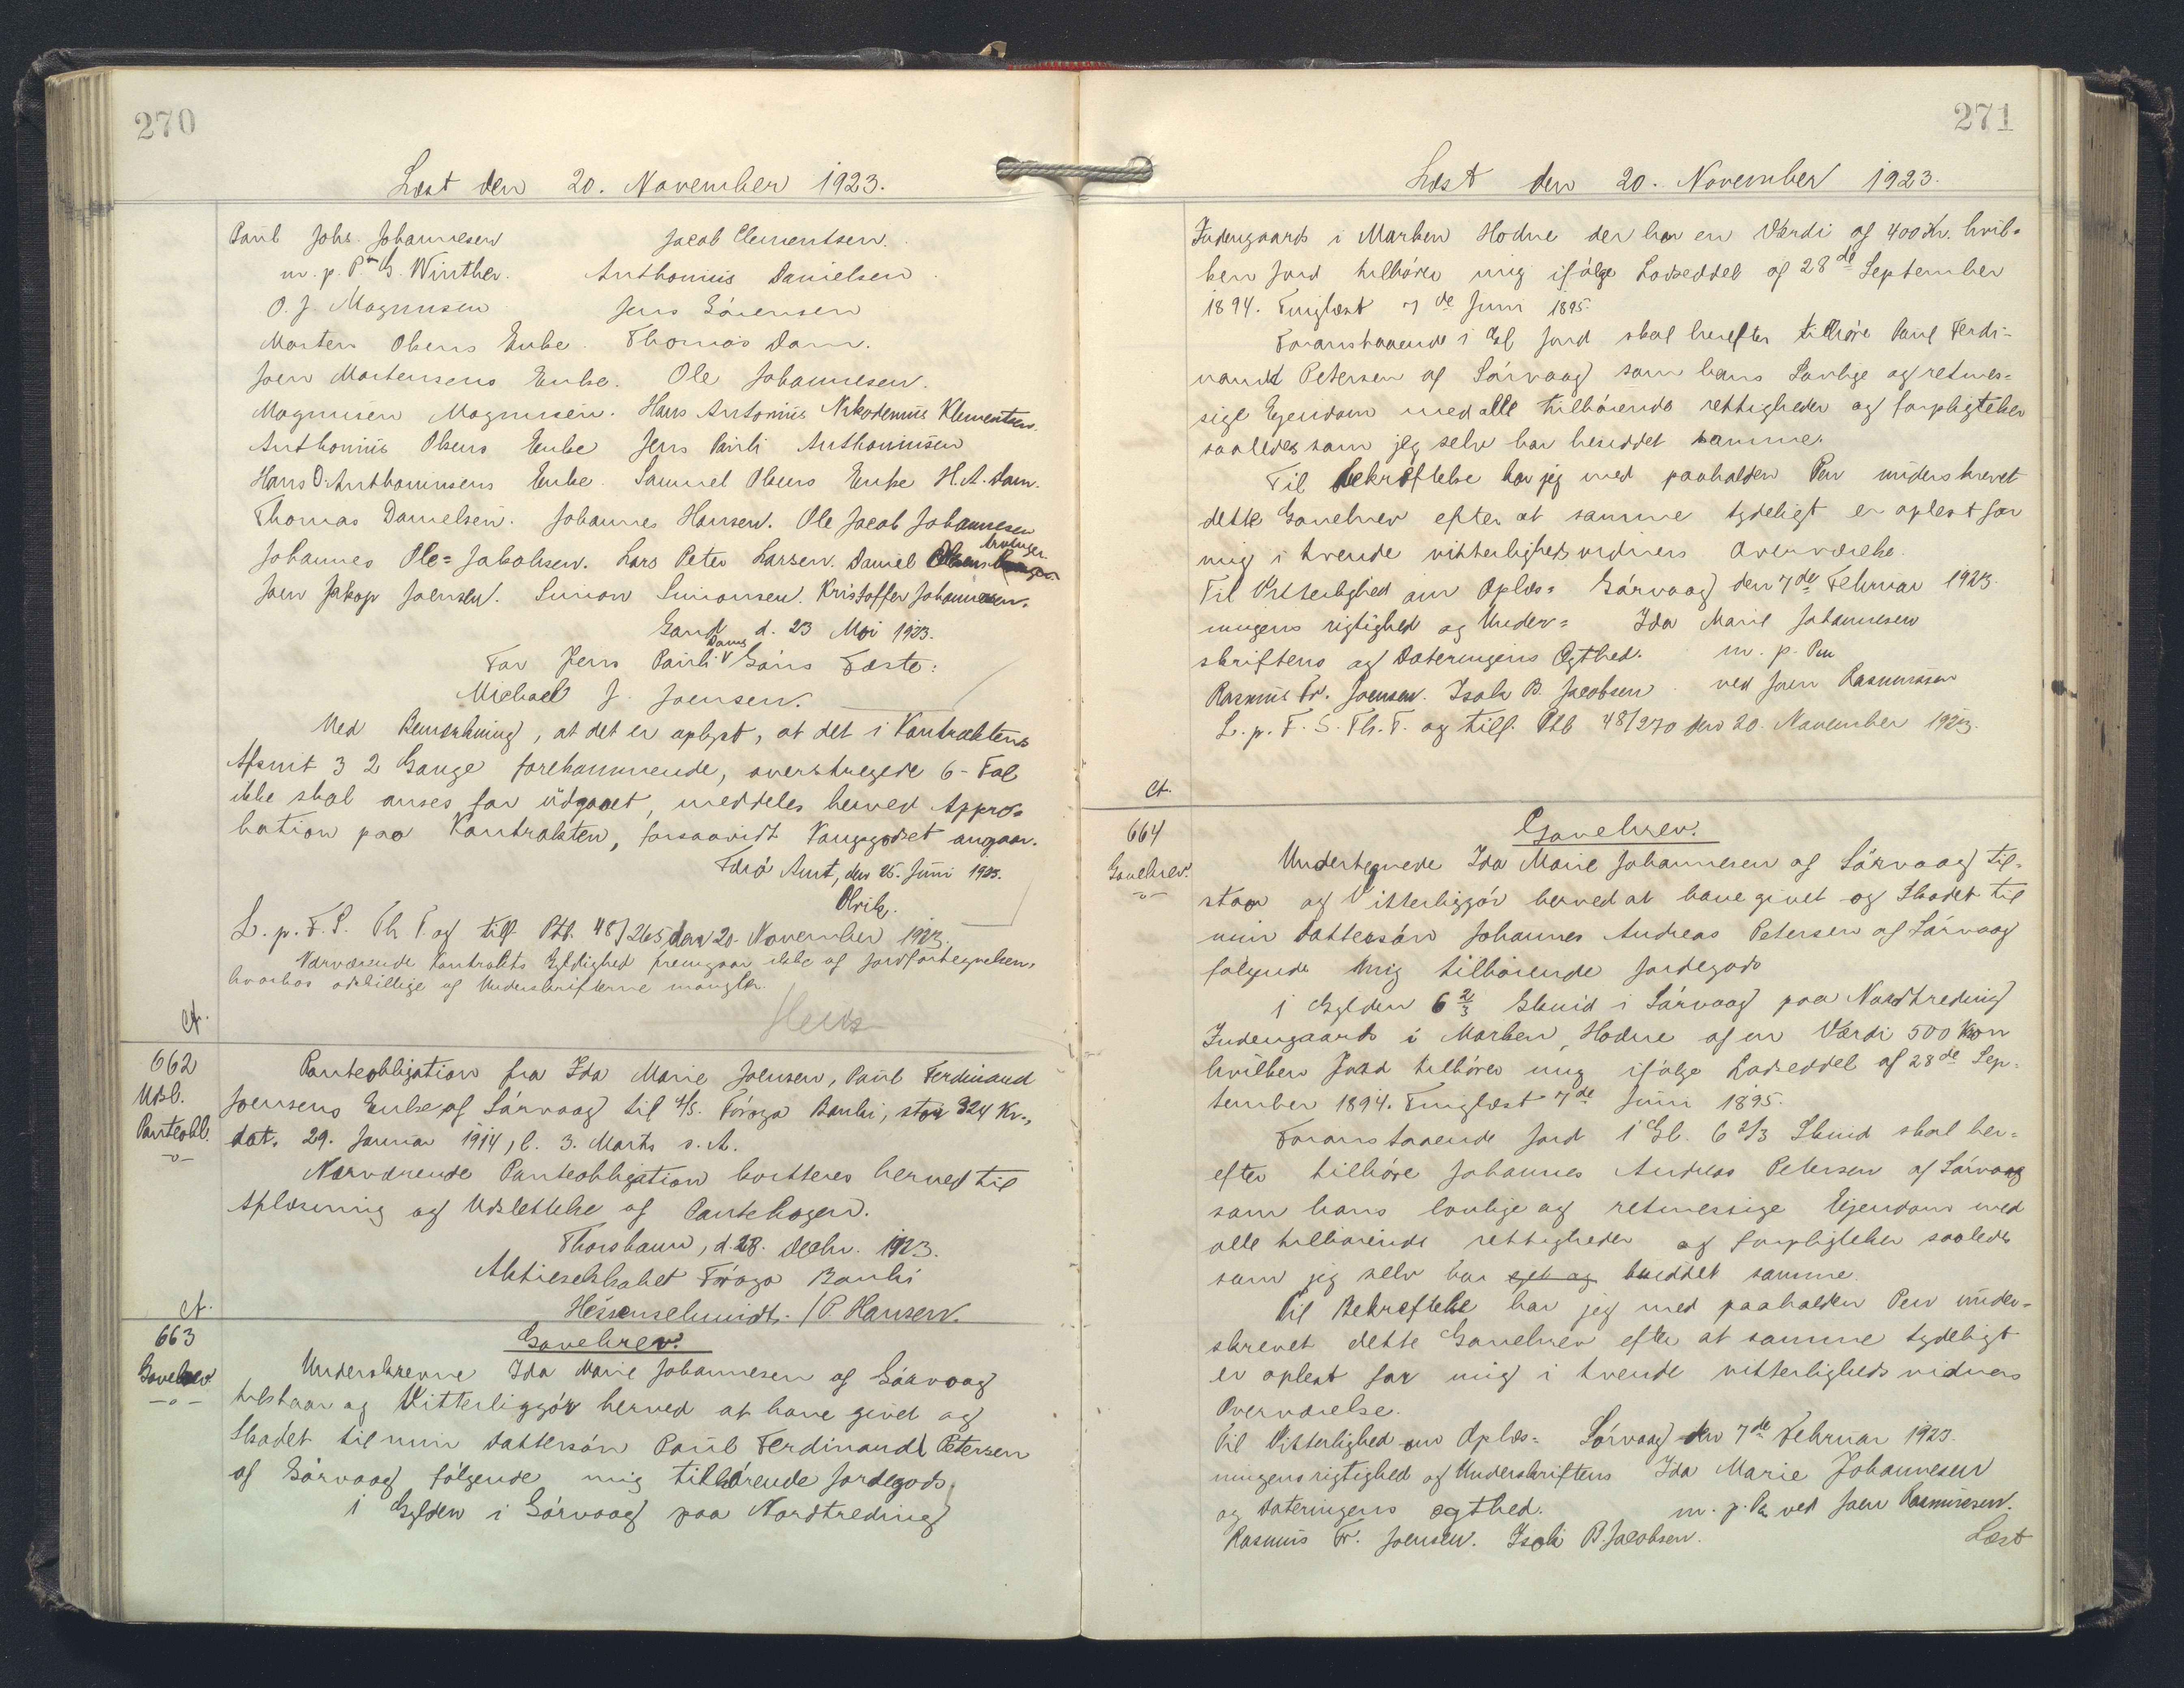 270
Læst den 20. November 1923.
Paul Johs. Johannesen Jacob Clementsen.
m. p. P. Winther. Anthonius Danielsen
O. J. Magnusen Jens Sörensen
Morten Olsens Enke. Thomas Dam.
Joen Mortensens Enke. Ole Johannesen.
Magnusen Magnusen. Hans Antonius Nikodemus Klementsen.
Anthonius Olsens Enke Jens Pauli Anthoniusen
Hans D. Anthoniusens Enke. Samuel Olsens Enke H. A. Dam.
Thomas Danielsen. Johannes Hansen. Ole Jacob Johannesen
Johannes Ole=Jakobsen. Lars Peter Larsen. Daniel Olsens Arvinger.
Joen Jakop Joensen. Simon Simonsen. Kristoffer Johannesen.
Sand d. 23 Mai 1923.
For Jens Pauli Dams Söns Fæste:
Michael J. Joensen.
Med Bemærkning, at det er oplyst, at det i Kontraktens
Afsnit 3 2 Gange forekommende, overstregede 6-Tal
ikke skal anses for udgaaet, meddeles herved Appro=
bation paa Kontrakten, forsaavidt Kongsgodset angaar.
Færø Amt, den 25. Juni 1923.
Olrik.
L. p. F. S. Th. T. og tilf. Ptb. 48/265 den 20. November 1923.
Nærværende Kontrakts Gyldighed fremgaar ikke af Jordfortegnelsen,
hvorhos adskillige af Underskrifterne mangler.
Ct.
662
Udsl.
Panteobl.
Panteobligation fra Ida Marie Joensen, Paul Ferdinand
Joensens Enke af Sörvaag til A/S. Föroya Banki, stor 324 Kr.,
dat. 29. Januar 1914, l. 3. Marts s. A.
Nærværende Panteobligation kvitteres herved til
Aflæsning og Udslettelse af Pantebogen.
Thorshavn, d. 28. Decbr. 1923.
Aktieselskabet Föroya Banki
Hessenschmidt. /P. Hansen.
Ct.
663
Gavebrev
Gavebrev.
Underskrevne Ida Marie Johannesen af Sörvaag
tilstaar og Vitterliggjör herved at have givet og
Skødet til min Dattersön Paul Ferdinand Petersen
af Sörvaag fölgende mig tilhörende Jordegods,
1 Gylden i Sörvaag paa Nordtreding
271
Læst den 20. November 1923.
Indengaards i Marken Hodne der har en Værdi af 400 Kr. hvil=
ken Jord tilhörer mig ifölge Lodseddel af 28de September
1894. Tinglæst 7de Juni 1895.
Foranstaaende 1 Gl Jord skal herefter tilhöre Paul Ferdi=
nandt Petersen af Sörvaag som hans Lovlige og retmes=
sige Ejendom med alle tilhörende rettigheder og forpligtelser
saaledes som jeg selv har besiddet samme.
Til Bekreftelse har jeg med paaholden Pen underskrevet
dette Gavebrev efter at samme tydeligt er oplest for
mig i tvende vitterlighedsvidners Overværelse.
Til Vitterlighed om Oplæs= Sörvaag den 7de Februar 1923.
ningens rigtighed og Under= Ida Marie Johannesen
skriftens og Dateringens Ægthed. m. p. Pen
Rasmus Fr. Joensen. Isak B. Jacobsen. ved Joen Rasmussen
L. p. F. S. Th. T. og tilf. Ptb 48/270 den 20. November 1923.
Ct.
664
Gavebrev.
Gavebrev.
Undertegnede Ida Marie Johannesen af Sörvaag til=
staar og Vitterliggjör herved at have givet og Skødet til
min Dattersön Johannes Andreas Petersen af Sörvaag
følgende mig tilhörende Jordegods
1 Gylden 6 2/3 Skind i Sörvaag paa Nordtreding
Indengaards i Marken, Hodne af en Værdi 500 Kron
hvilken Jord tilhörer mig ifölge Lodseddel af 28de Sep=
tember 1894. Tinglæst 7de Juni 1895.
Foranstaaende Jord 1 Gl. 6 2/3 Skind skal her=
efter tilhöre Johannes Andreas Petersen af Sörvaag
som hans lovlige og retmessige Ejendom med
alle tilhörende rettigheder og forpligtelser saaledes
som jeg selv har ejet og besiddet samme.
Til Bekreftelse har jeg med paaholden Pen under=
skrevet dette Gavebrev efter at samme tydeligt
er oplest for mig i tvende vitterligheds vidners
Overværelse.
Til Vitterlighed om Oplæs= Sörvaag den 7de Februar 1923.
ningens rigtighed og Underskriftens Ida Marie Johannesen
og Dateringens ægthed. m. p. Pen ved Joen Rasmussen.
Rasmus Fr. Joensen. Isak B. Jacobsen. Læst